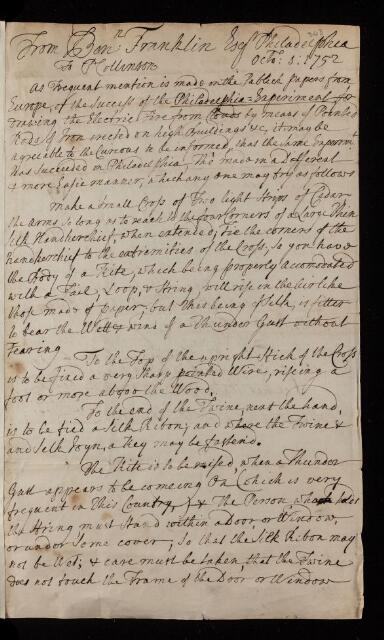 From Benn Franklin Esqr Philadelphia
To P Collinson Octo: 1: 1752
As frequent mention is made in the Publick papers from
Europe, of the Success of the Philadelphia-Experiment for
Drawing the Electric Fire from Clouds by means of Pointed
Rods of Iron erected on high Buildings &c, it may be
agreeable to the Curious to be informed, that the same Experimt
Has Succeeded in Philadelphia, Tho' made in a Different
& more Easie manner, which any one may try as follows
Make a Small Cross of Two light Strips of Cedar
the Arms so long as to reach to the four Corners of a Large Thin
Silk Handkerchief, when extended, tie the corners of the
Handkerchief to the extremities of the Cross, so you have
the Body of a Kite, which being properly Accomodated
with a Tail, Loop, & String will rise in the air like
those made of paper, but this being of Silk, is fitter
to bear the Wett & wind of a Thunder Gust without
Tearing
To the Top of the upright Stick of the Cross
is to be fixed a very Sharp pointed Wire, rising a
foot or more above the Wood,
To the end of the Twine, next the hand,
is to be tied a Silk Ribon; and where the Twine &
and Silk Joyn, a Key may be fastend.
The Kite is to be raised, when a Thunder
Gust appears to be comeing On (which is very
frequent in this Country,) & The Person, who holds
the String must Stand within a Door or Window,
or under Some cover, So that the Silk Ribon may
not be Wet; & care must be taken that the Twine
does not touch the Frame of the Door or Window